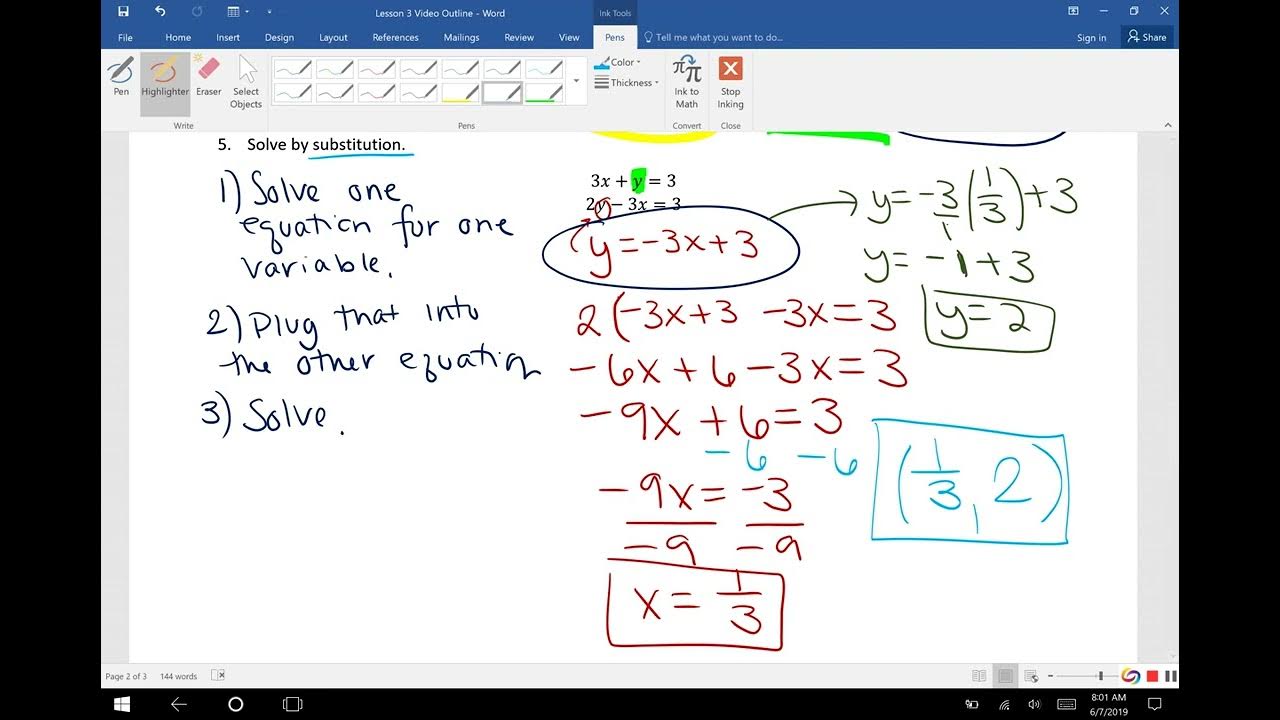 Lesson 3 Video Outline - Word
Ink Tools
File Home Insert Design Layout References Mailings Review View Pens Tell me what you want to do... Sign in Share
Pen Highlighter Eraser Select Objects
Color
Thickness
Ink to Math
Stop Inking
Write Pens Convert Close
5. Solve by substitution.
3x + y = 3
2y − 3x = 3
1) Solve one
equation for one
variable.
2) Plug that into
the other equation
3) Solve.
y = -3x + 3
2(-3x+3 -3x = 3
-6x + 6 - 3x = 3
-9x + 6 = 3
-6 -6
-9x = -3
-9 -9
x = 1/3
y = -3/1 (1/3) + 3
y = -1 + 3
y = 2
(1/3, 2)
Page 2 of 3 144 words
8:01 AM
6/7/2019